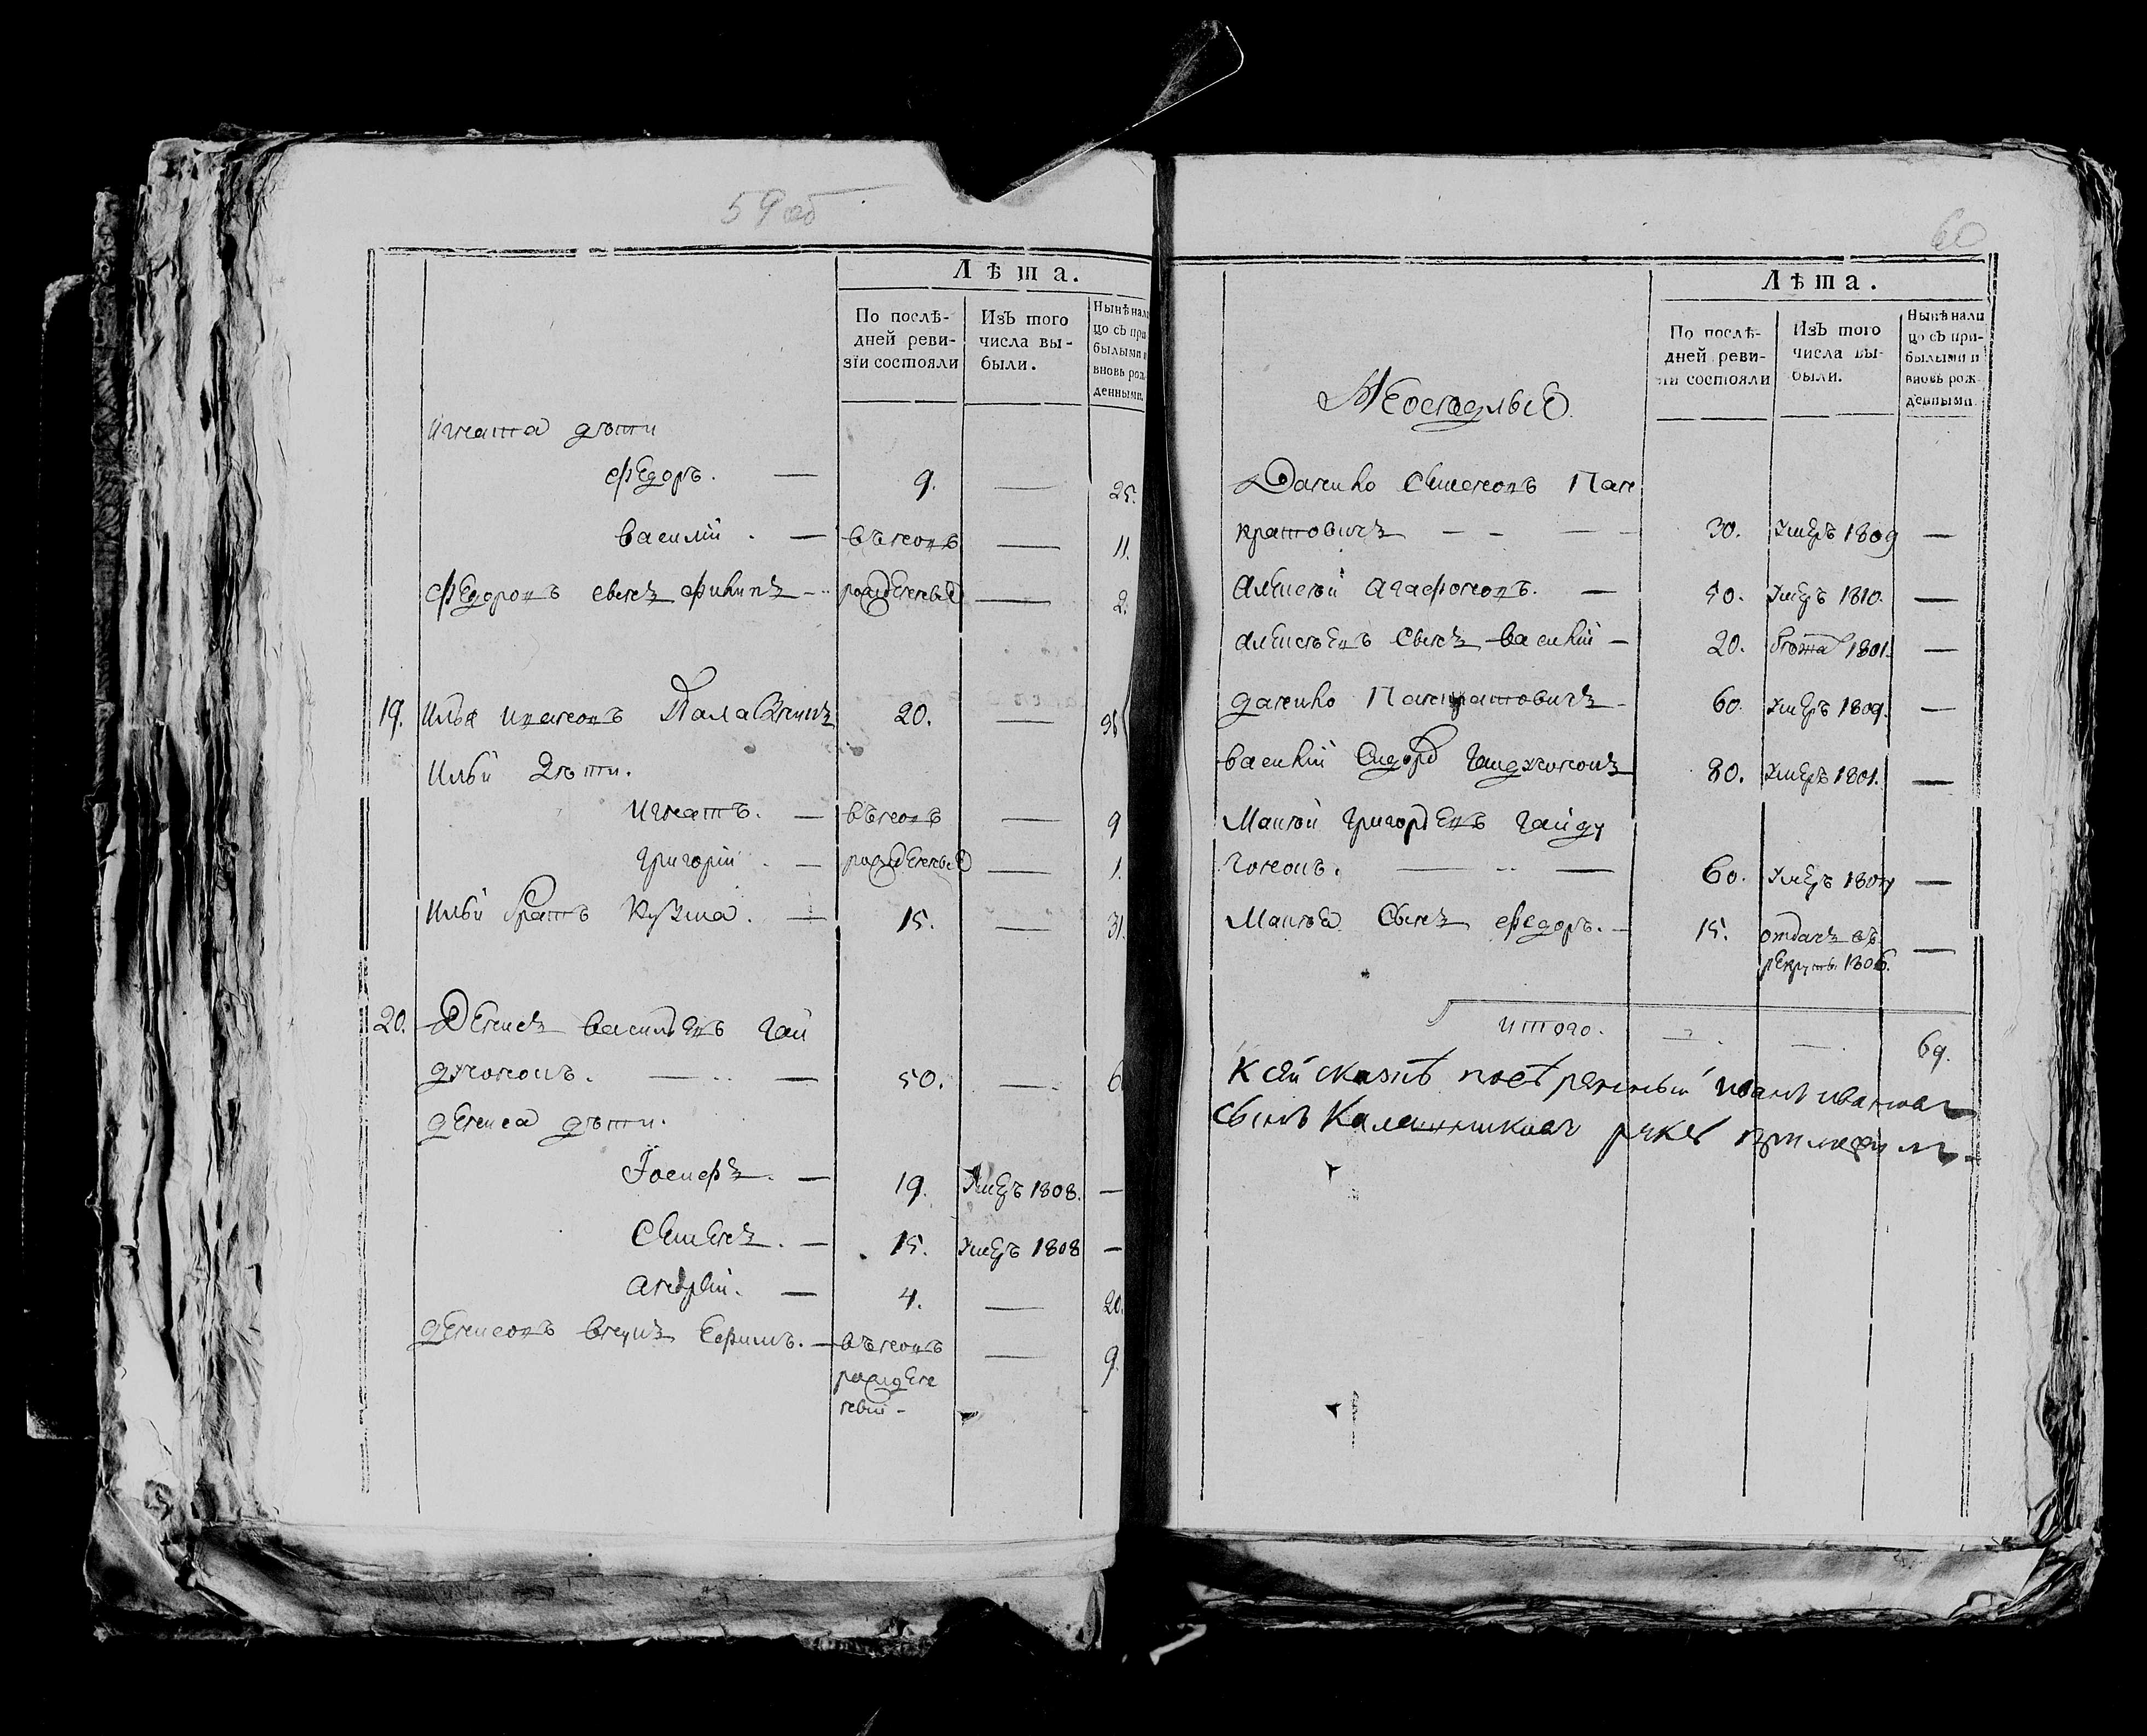 59 об
Лѣта.
По послѣ-
дней реви-
зіи состояли
Изъ того
числа вы-
были.
Нынѣ нали
цо съ при
былыми и
вновь рож
денными.
Игната дѣти
Федоръ. — 9. — 25.
Василій. — въновь — 11.
Федоровъ сынъ Филипъ — рожденные — 2.
19. Илья Ивановъ 20. —
Ильи дѣти.
Игнатъ. — въновь — 9
Григорій. — рожденные — 1.
Ильи братъ Кузма. — 15. — 31.
20. Денисъ Васильевъ Гай
дуковомъ. — 50. — 6
Дениса дѣти.
Іосифъ. — 19. Умеръ 1808. —
Семенъ. — 15. Умеръ 1808 —
Андрѣй. — 4. — 20.
Денисовъ внукъ Ефимъ. — въновь — 9.
рожден
ный -
60
Лѣта.
По послѣ-
дней реви-
зіи состояли
Изъ того
числа вы-
были.
Нынѣ нали
цо съ при-
былыми и
вновь рож-
денными.
Данило Семеновъ Пан
кратовичъ — 30. Умеръ 1809 —
Алексей Агафоновъ. — 50. Умеръ 1810. —
Алексѣевъ сынъ Василій — 20. 1801. —
Данило Панкратовичъ 60. Умеръ 1809. —
Василій Сидоръ 80. Умеръ 1801. —
Григорьевъ Гайду
60. Умеръ —
сынъ Федоръ. — 15. отданъ въ —
рекруты 1806.
итого. — — 69.
К сей сказкѣ Иванъ Ивановъ
сынъ Калашниковъ руку приложилъ.